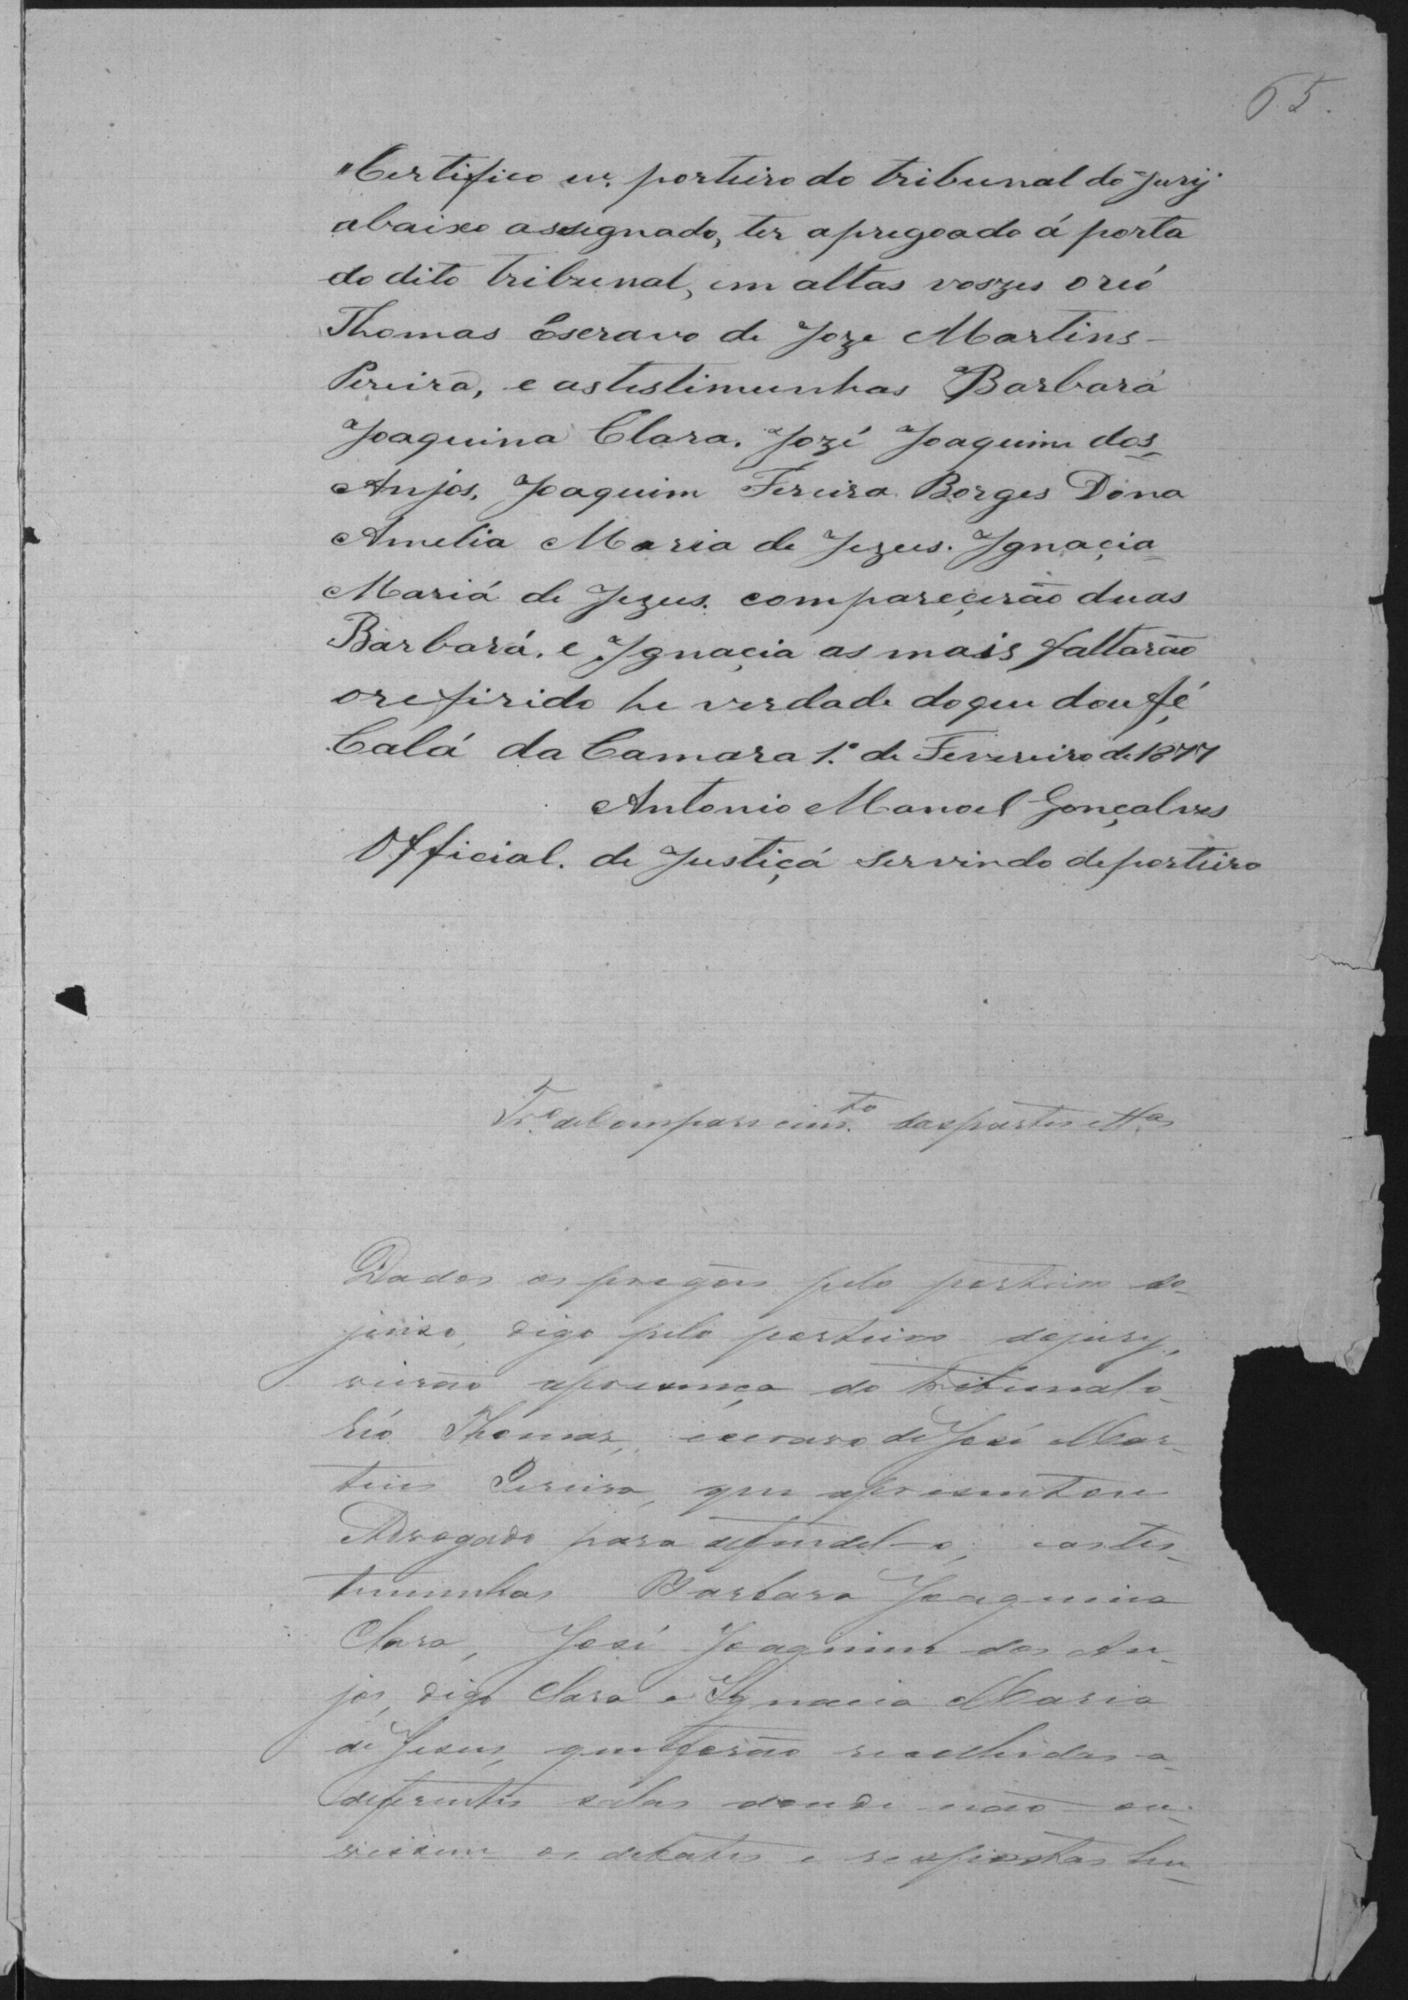 65.
"Certifico eu, porteiro do tribunal do Jury
abaixo assignado, ter apregoado á porta
do dito tribunal, em altas voszes o reó
Thomas Escravo de Joze Martins-
Pereira, e as testimunhas Barbará
Joaquina Clara. Jozé Joaquim dos
Anjos. Joaquim Fereira Borges Dona
Amelia Maria de Jezus. Ignaçia
Mariá de Jezus. compareçerão duas
Barbará. e Ignaçia as mais faltarão
o refirido he verdade do que dou fé
Calá da Camara 1.º de Fevereiro de 1877
Antonio Manoel Gonçalves
Official. de Justiçá servindo de porteiro
Tr.º de Comparecim.to das partes e tt.as
Dados os pregões pelo porteiro do
juiso, digo pelo porteiro do jury,
vierão a presença do tribunal o
réo Thomas, escravo de José Mar-
tins Pereira, que apresentou
Advogado para defendel-o, e as tes-
timunhas Barbara Joaquina
Clara, José Joaquim dos An-
jos, digo Clara e Ignacia Maria
de Jesus, que forão recolhidas a
deferentes salas donde não ou-
vissem os debates e respostas hu-